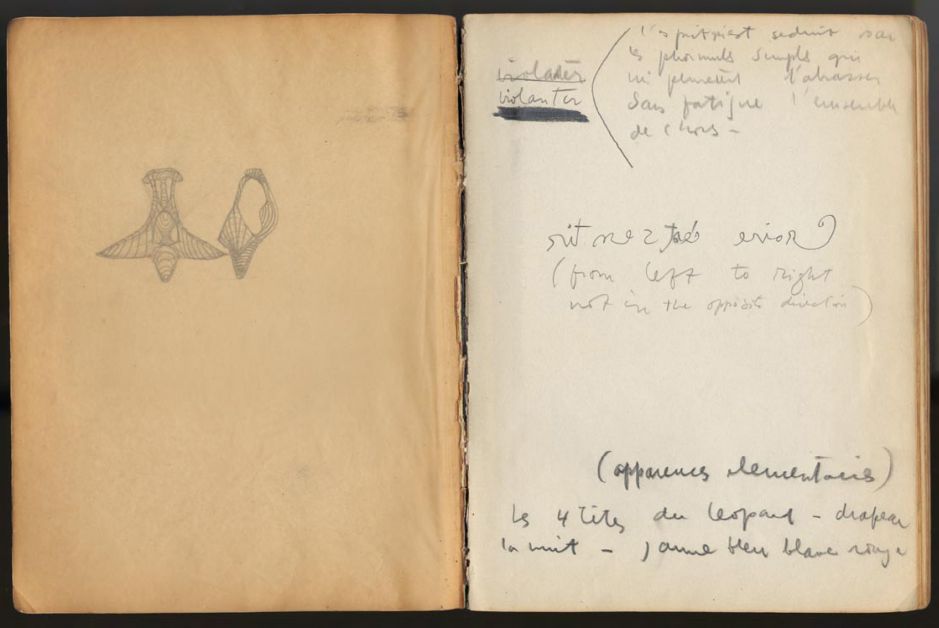 violanter
l'esprit est seduit par
les phormuls simpls qui
lui permettent l'abrasser
sans fatigue l'ensemble
de choses -
error
(from left to right
not in the opposite direction)
(apparences elementaires)
les 4 têtes du leopard - drapeau
la nuit - jaune bleu blanc rouge